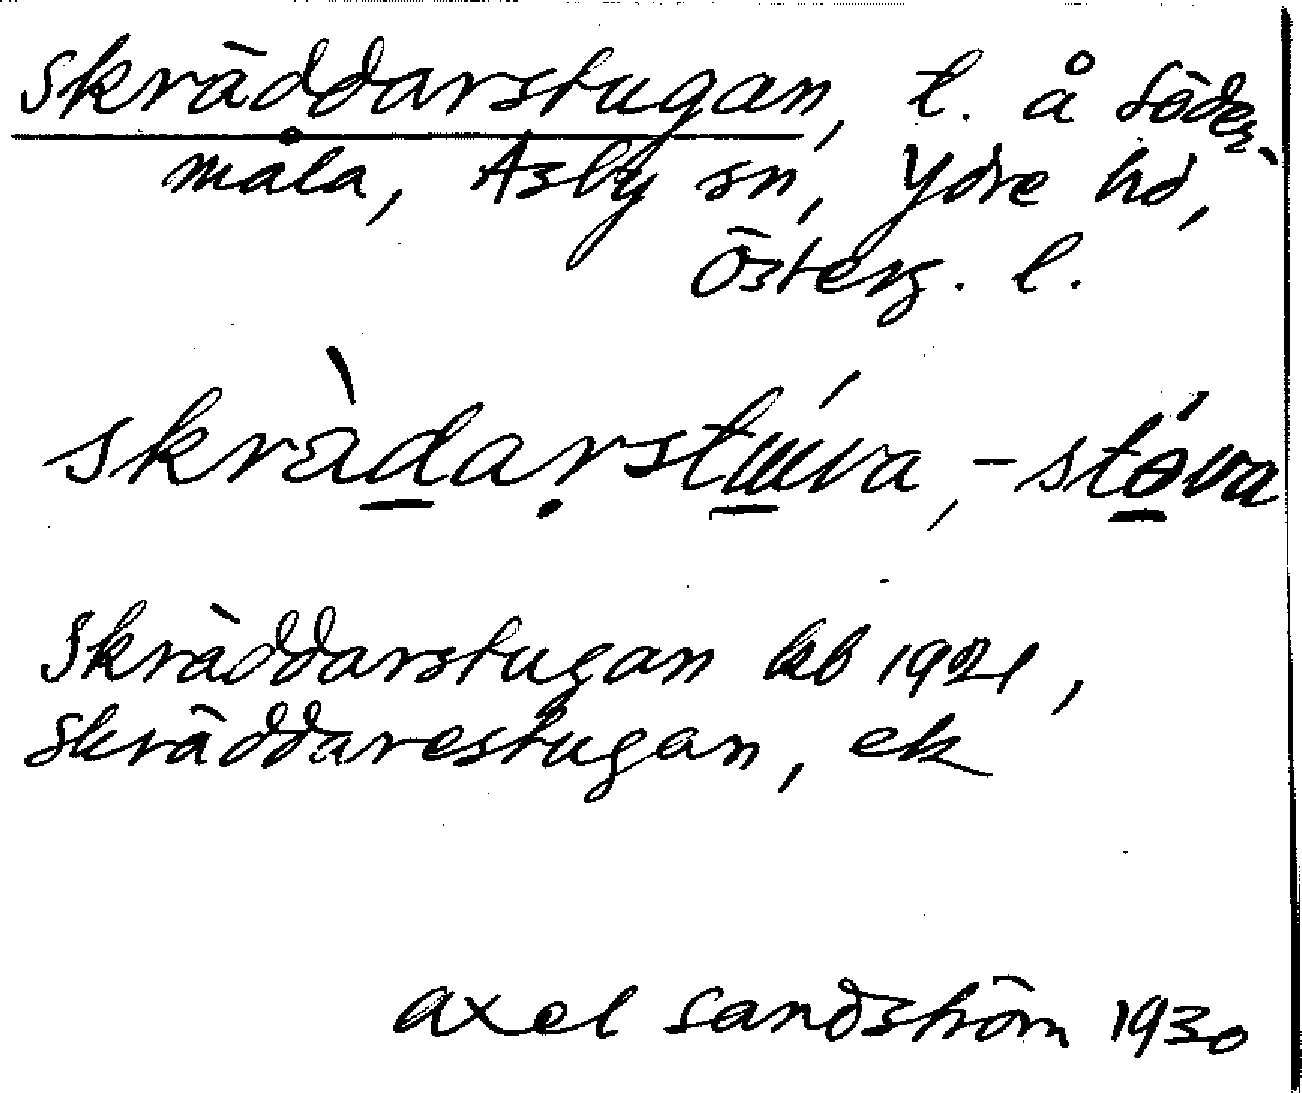 Skräddarstugan, l. å Söder-
måla, Asby sn, Ydre hd,
Österg. l.
skràdarstúva, -stóva
Skräddarstugan kb 1921,
Skräddarestugan, ek
Axel Sandström 1930